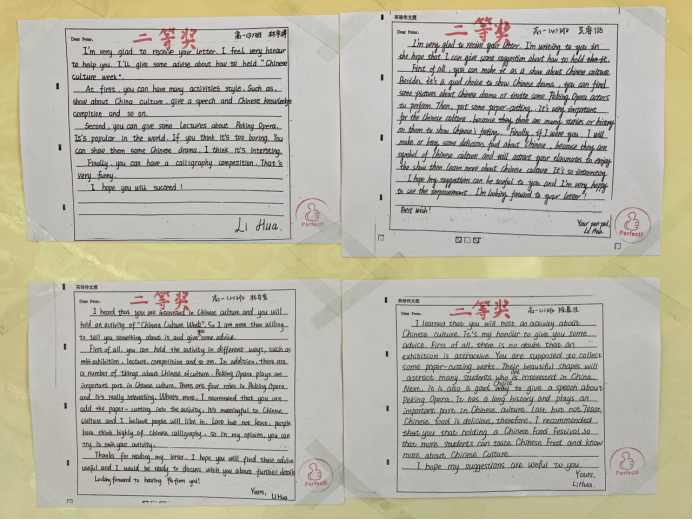 二等奖
高一(3)班
Dear Peter,
I'm very glad to receive your letter. I feel very honour
to help you. I'll give some advise about how to hold "Chinese
culture week".
At first, you can have many activities style. Such as,
show about China culture, give a speech and Chinese knowledge
compition and so on.
Second, you can give some Lectures about Peking Opera.
It's popular in the world. If you think it's too boring. You
can show them some Chinese drama. I think it's interesting.
Finally, you can have a calligraphy compeition. That's
very funny.
I hope you will succeed!
Li Hua.
Perfect!
英语作文题
二等奖
Dear Peter,
I'm very glad to receive your letter. I'm writing to you in
the hope that I can give some suggestion about how to hold
First of all, you can make it as a show about Chinese culture.
Besides, it's a good choice to show Chinese drama, you can find
some pictures about Chinese drama or invite some Peking Opera actors
to perform. Then, put some paper-cutting. It's very important
for the Chinese culture, because there are many stories or history
on them to show Chinese's feeling. Finally, if I were you, I will
make or buy some delicious food about Chinese, because they are
symbol of Chinese culture and will attract your classmates to enjoy
the show then learn more about Chinese culture. It's so interesting
I hope my suggestions can be useful to you and I'm very happy
to see the improvement. I'm looking forward to your letter!
Best wish!
Your pen pal,
Li Hua.
Perfect!
英语作文题
二等奖
Dear Peter,
I heard that you are interested in Chinese culture and you will
hold an activity of "Chinese Culture Week". So I am more than willing
to tell you something about it and give some advice.
First of all, you can hold the activity in different ways, such as
exhibition, lecture, competition and so on. In addition, there are
a number of things about Chinese culture. Peking Opera plays an
important part in Chinese culture. There are four roles in Peking Opera
and it's really interesting. What's more, I recommend that you can
add the paper-cutting into the activity. It's meaningful to Chinese
culture and I believe people will like it. Last but not least, people
here think highly of Chinese calligraphy, so in my opinion, you can
try it in your activity.
Thanks for reading my letter. I hope you will find these advice
useful and I would be ready to discuss with you about further details
Looking forward to hearing from you!
Yours,
Li Hua
Perfect!
英语作文题
二等奖
Dear Peter,
I learned that you will host an activity about
Chinese culture. It's my honour to give you some
advice. First of all, there is no doubt that an
exhibition is attractive. You are supposed to collect
some paper-cutting works. Their beautiful shapes will
are
attract many students who is interested in China.
choice
Next, it is also a good way to give a speech about
Peking Opera. It has a long history and plays an
important part in Chinese culture. Last but not least,
Chinese food is delicious, therefore, I recommended
that you that holding a Chinese Food Festival so
that more students can taste Chinese Food and know
more about Chinese Culture.
I hope my suggestions are useful to you
Yours,
Li Hua
Perfect!